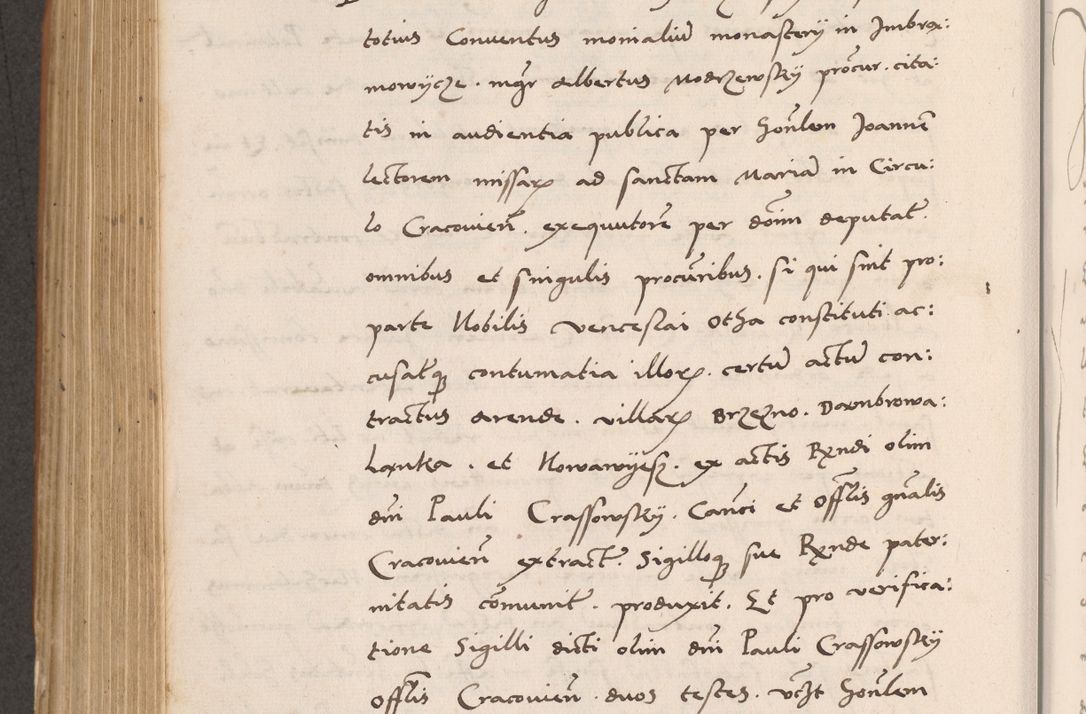 totius Conuentus monialiū monastery in Imbra:
mowycze. mgr Albertus Modrzewsky procur. cita:
tis in audientia publica per honlem Joannē
lectorem missarꝝ ad sanctam Mariā in Circu:
lo Cracouien̄. exequutorē per doīm deputat̄.
omnibus et singulis procur̄ibus. si qui sint pro:
parte Nobilis Venceslai Otha constituti ac:
cusatꝗ contumatia illorꝝ. certū actū con:
tractus arende. villarꝝ Brzezno. Dambrowa:
Lanka. et Nowawyesz. ex actis Rx̄ndi olim
dn̄i Pauli Crassowsky. Can̄ci et Offl̄is gn̄alis
Cracouien̄ extract̄. Sigilloꝗ sue Rx̄nde pater:
nitatis cōmunit̄. produxit. Et pro verifica:
tione Sigilli dicti olim dn̄i Pauli Crassowsky
Offl̄is Cracouien̄. duos testes. vcz̄t honlem